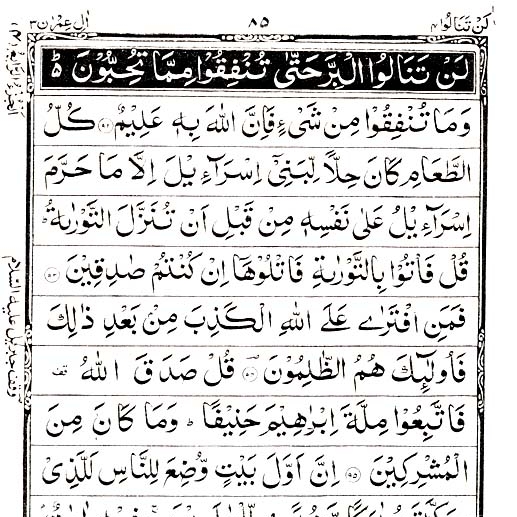 لن تنالوا ٤
٨٥
ال عمرٰن ٣
لَنْ تَنَالُوا الْبِرَّ حَتّٰى تُنْفِقُوْا مِمَّا تُحِبُّوْنَ ؕ
وَمَا تُنْفِقُوْا مِنْ شَیْءٍ فَاِنَّ اللّٰهَ بِهٖ عَلِیْمٌ ﴿۹۲﴾ كُلُّ
الطَّعَامِ كَانَ حِلًّا لِّبَنِیْۤ اِسْرَآءِیْلَ اِلَّا مَا حَرَّمَ
اِسْرَآءِیْلُ عَلٰى نَفْسِهٖ مِنْ قَبْلِ اَنْ تُنَزَّلَ التَّوْرٰىةُ ؕ
قُلْ فَاْتُوْا بِالتَّوْرٰىةِ فَاتْلُوْهَاۤ اِنْ كُنْتُمْ صٰدِقِیْنَ ﴿۹۳﴾
فَمَنِ افْتَرٰى عَلَى اللّٰهِ الْكَذِبَ مِنْۢ بَعْدِ ذٰلِكَ
فَاُولٰٓئِكَ هُمُ الظّٰلِمُوْنَ ﴿۹۴﴾ قُلْ صَدَقَ اللّٰهُ قف
فَاتَّبِعُوْا مِلَّةَ اِبْرٰهِیْمَ حَنِیْفًا ؕ وَمَا كَانَ مِنَ
الْمُشْرِكِیْنَ ﴿۹۵﴾ اِنَّ اَوَّلَ بَیْتٍ وُّضِعَ لِلنَّاسِ لَلَّذِیْ
الجزء الرابع (٤)
وقف جبريل عليه السلام